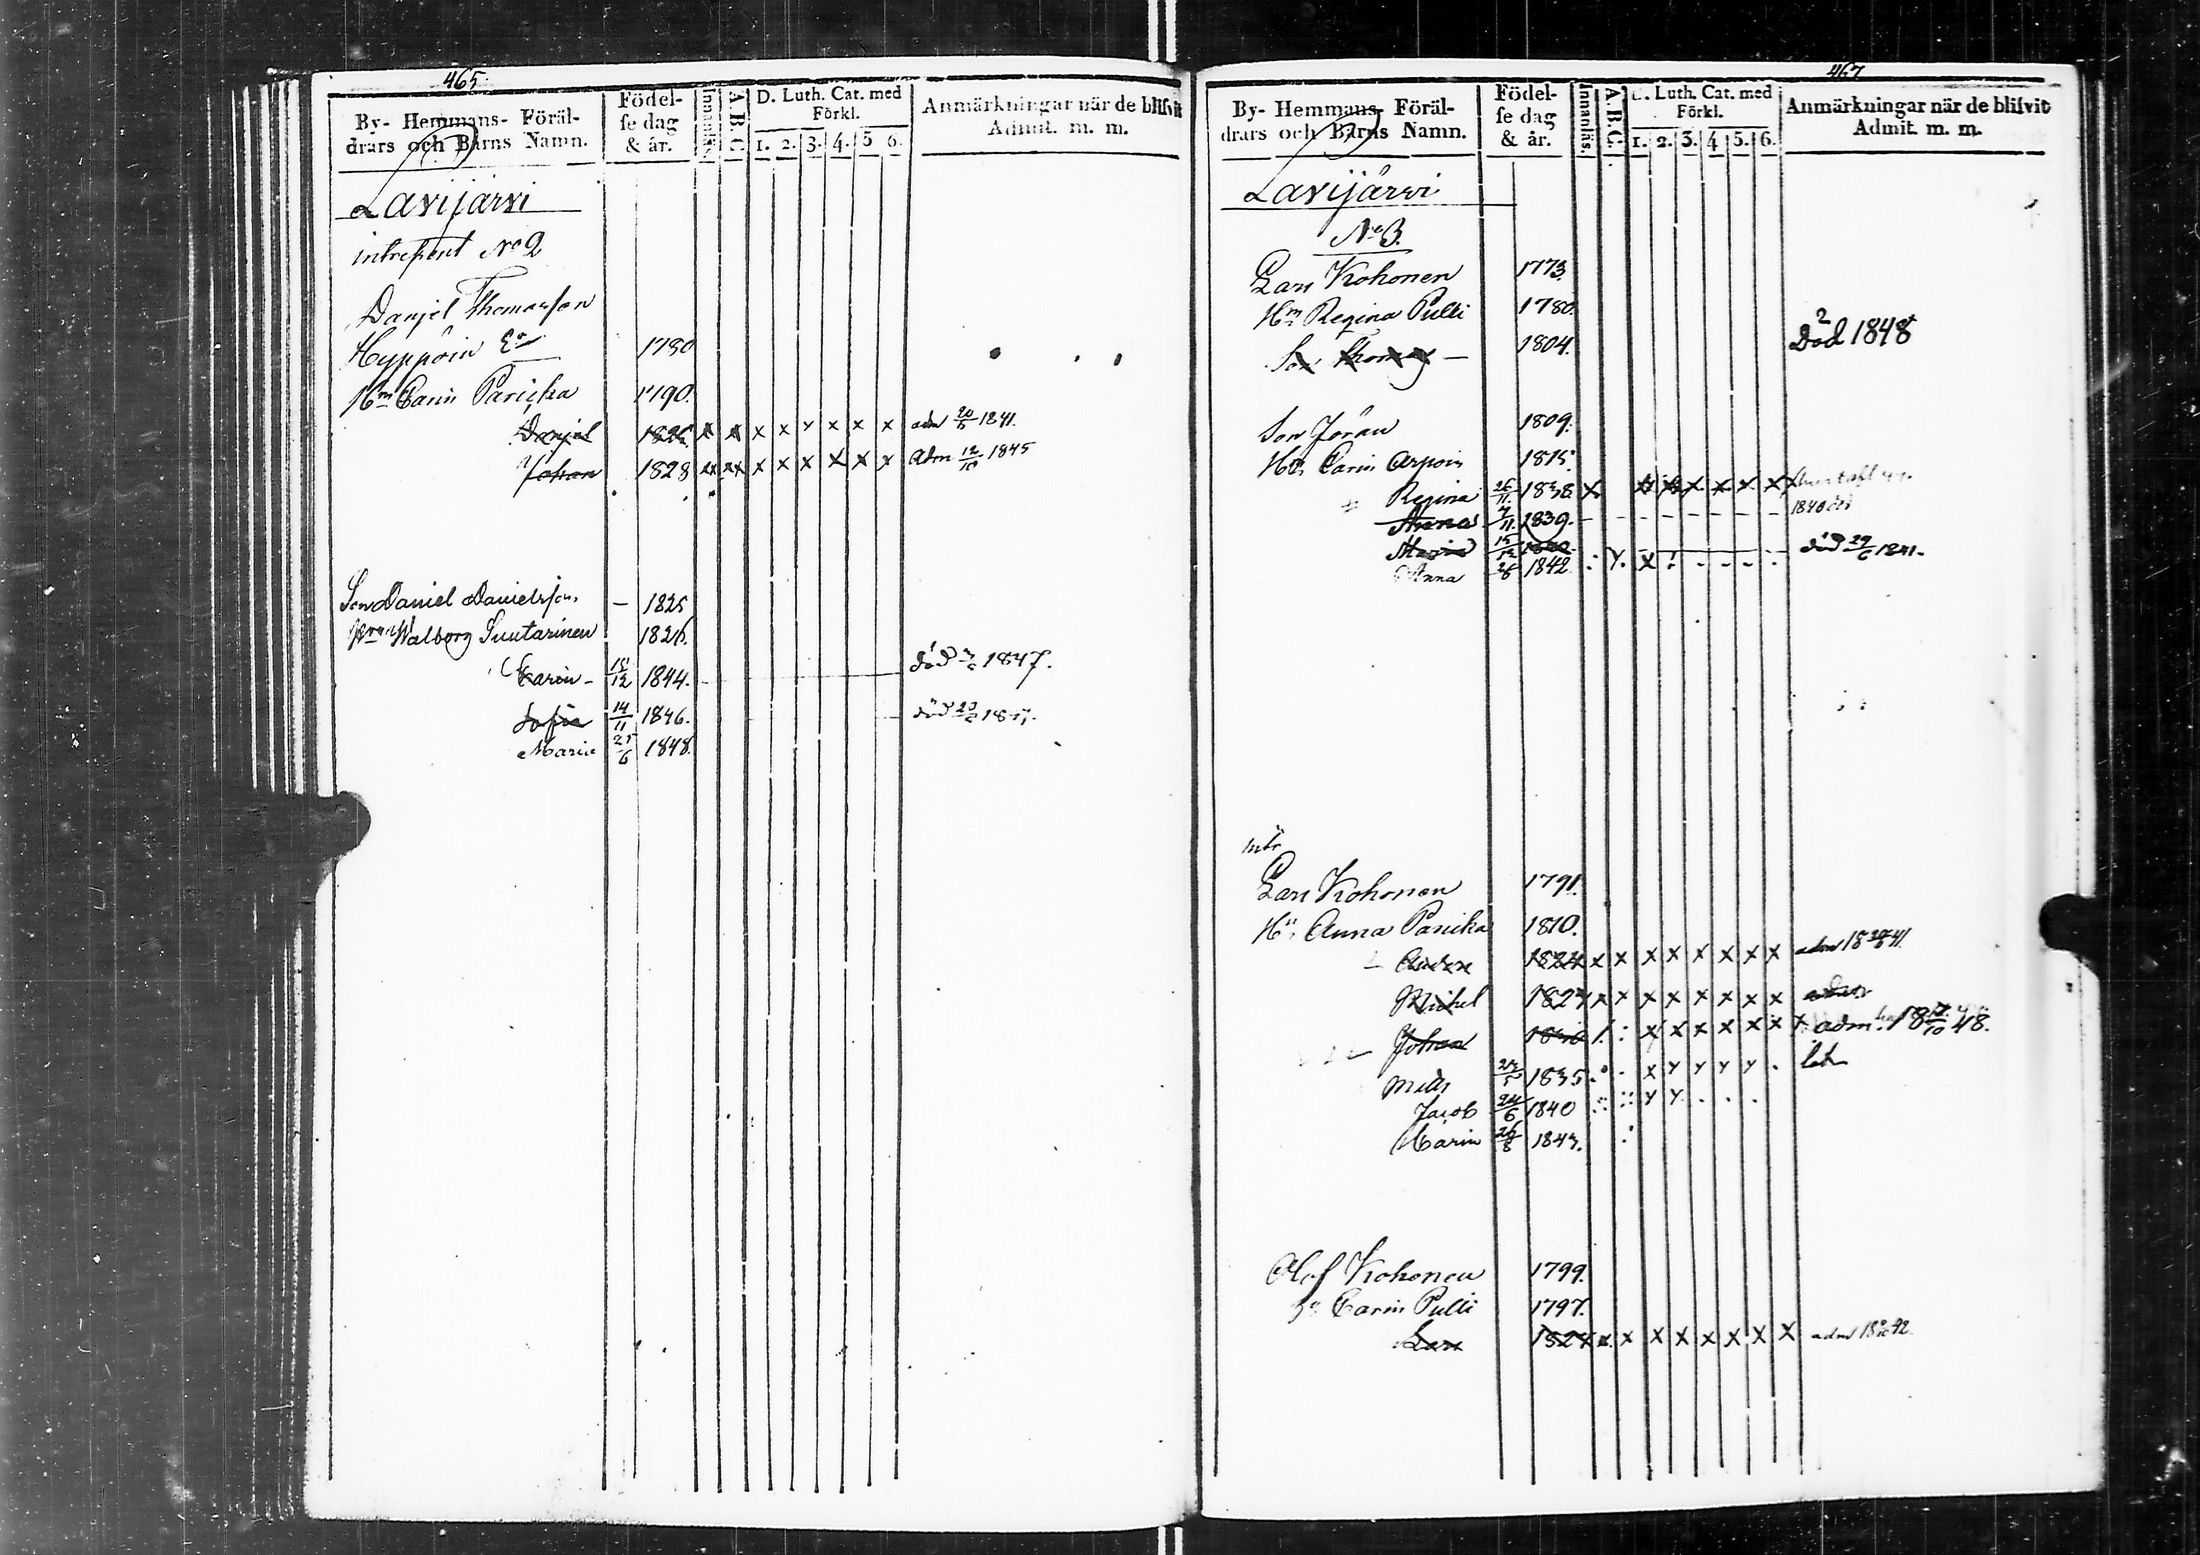 465
By- Hemmans- Föräl-
drars och Barns Namn.
Födel-
se dag
& år.
Innanläs.
A.B.C.
D. Luth. Cat. med
Förkl.
1. 2. 3. 4. 5 6.
Anmärkningar när de blifvit
Admit. m. m.
Lavijärvi
No 2
Danjel Thomasson
Hyppöin 1780
Hm Carin Parikka 1790.
Danjel 1826 x x x x x x x x adm 20/6 1841.
Johan 1828 x x x x x x Adm 12/10 1845
Son Daniel Danielsson - 1825
Walborg Suutarinen 1826.
Carin - 15/12 1844. död 1847.
Sofia 14/11 1846. död
Maria 25/6 1848.
467
By- Hemmans- Föräl-
drars och Barns Namn.
Födel-
se dag
& år.
Innanläs.
A.B.C.
D. Luth. Cat. med
Förkl.
1. 2. 3. 4 5. 6.
Anmärkningar när de blifvit
Admit. m. m.
Lavijärvi
No 3.
Lars Kohonen 1773.
Hm Regina Pulli 1780.
Son Thomas - 1804. Död 1848
Son Jöran 1809.
Carin Arpoin 1815.
Regina 26/11. 1838 x x x x x x x
7/11. 1839.
Maria 15/12 död 29/6 1841.
Anna 1842
intr
Lars Kohonen 1791.
Anna Parikka 1810.
1824 x x x x x x x x
Michel 1827 x x x x x x x x adm
Johan x x x x x x x adm. 18 12/10 48.
Mats 1835
Jacob 24/6 1840
Carin 26/8 1843.
Olof Kohonen 1799.
Carin Pulli 1797.
Lars 1824 x x x x x x x x adm